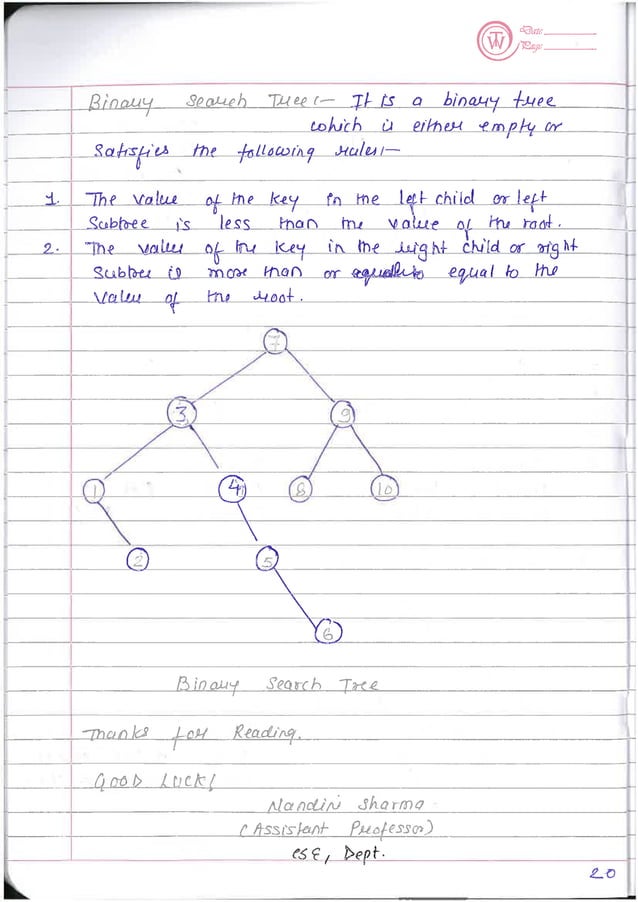 TW
Date
Page
Binary Search Tree:- It is a binary tree
which is either empty or
satisfies the following rules:-
1. The value of the key in the left child or left
Subtree is less than the value of the root.
2. The value of the key in the right child or right
Subtree is more than or equal to the
value of the root.
7
3 9
1 4 8 10
2 5
6
Binary Search Tree
Thanks for Reading.
GOOD LUCK!
Nandini Sharma
(Assistant Professor)
CSE, Dept.
20